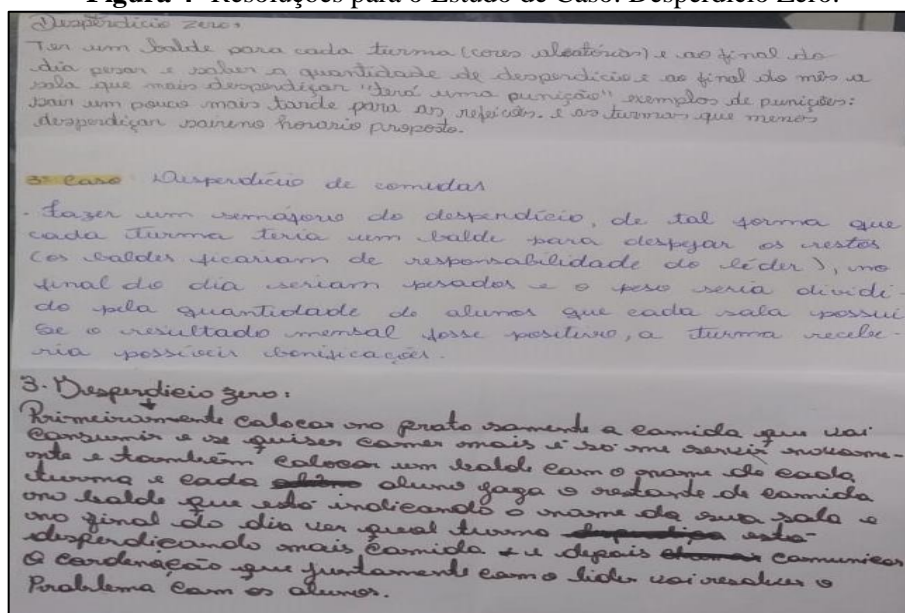 Figura 4- Resoluções para o Estudo de Caso: Desperdício Zero.
Desperdício zero:
Ter um balde para cada turma (cores aleatórias) e ao final do
dia pesar e saber a quantidade de desperdício e ao final do mês a
sala que mais desperdiçar "terá uma punição" exemplos de punições:
sair um pouco mais tarde para as refeições. e as turmas que menos
desperdiçar saire no horario proposto.
3º Caso Desperdício de comidas
. Fazer um semáforo do desperdício, de tal forma que
cada turma teria um balde para despejar os restos
(os baldes ficariam de responsabilidade do líder), no
final do dia seriam pesados e o peso seria dividi-
do pela quantidade de alunos que cada sala possui
Se o resultado mensal fosse positivo, a turma recebe-
ria possíveis bonificações.
3. Desperdicio zero:
Primeiramente colocar no prato somente a comida que vai
consumir e se quiser comer mais é só me servir novame-
nte e também colocar um balde com o nome de cada
turma e cada aluno gaga o restante de comida
no balde que está indicando o nome da sua sala e
no final do dia ver qual turma está
desperdiçando mais comida e depois comunicar
a cordenação que juntamente com o lider vai resolver o
Problema com os alunos.